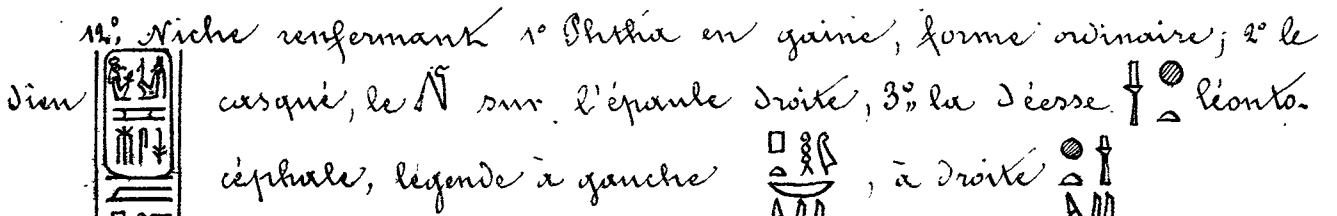 12°, Niche renfermant 1° Phtha en gaine, forme ordinaire; 2° le
dieu casqué, le sur l'épaule droite, 3°, la déesse léonto-
céphale, légende à gauche , à droite